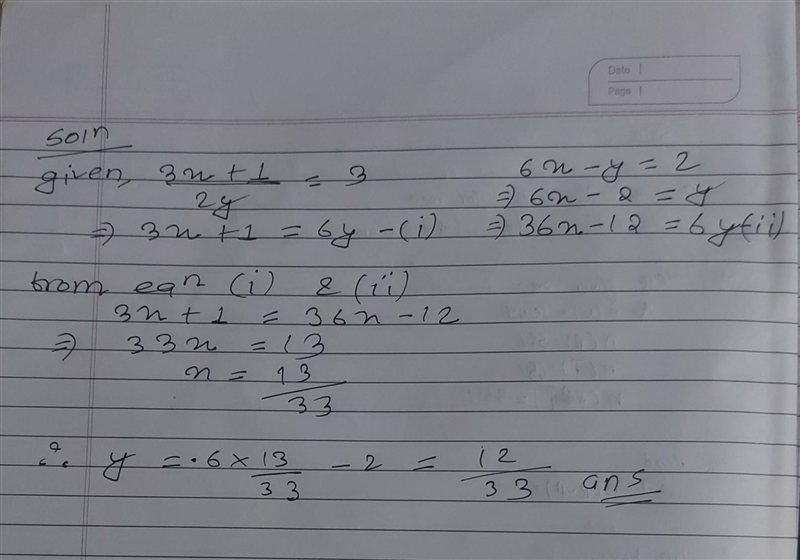 Date
Page
Soln
given, 3x + 1 / 2y = 3    6x - y = 2
⇒ 6x - 2 = y
⇒ 3x + 1 = 6y - (i)    ⇒ 36x - 12 = 6y - (ii)
from eqn (i) & (ii)
3x + 1 = 36x - 12
⇒ 33x = 13
x = 13 / 33
∴ y = 6 × 13 / 33 - 2 = 12 / 33 ans